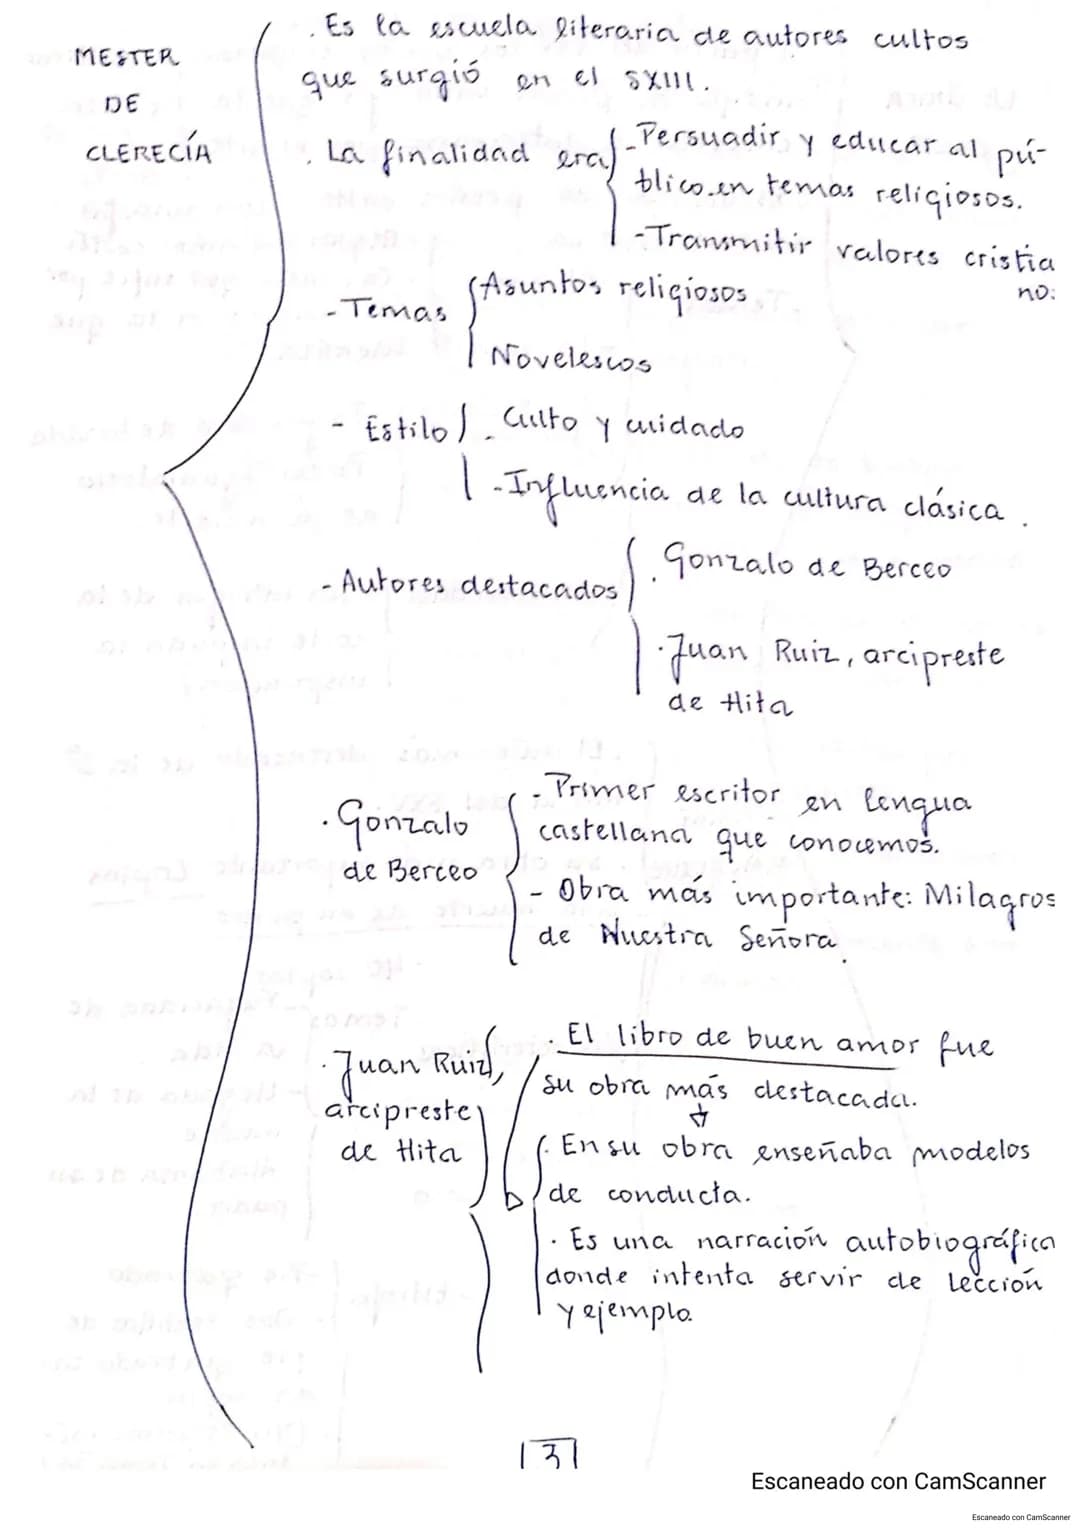 MESTER
DE
CLERECÍA
. Es la escuela literaria de autores cultos
que surgió en el SXIII.
. La finalidad era
-Persuadir y educar al pú-
blico en temas religiosos.
-Transmitir valores cristia
no:
- Temas
Asuntos religiosos
Novelescos
- Estilo
. Culto y cuidado
- Influencia de la cultura clásica.
- Autores destacados
. Gonzalo de Berceo
. Juan Ruiz, arcipreste
de Hita
. Gonzalo
de Berceo
- Primer escritor en lengua
castellana que conocemos.
- Obra más importante: Milagros
de Nuestra Señora.
. Juan Ruiz,
arcipreste
de Hita
. El libro de buen amor fue
su obra más destacada.
. En su obra enseñaba modelos
de conducta.
. Es una narración autobiográfica
donde intenta servir de lección
y ejemplo.
3
Escaneado con CamScanner
Escaneado con CamScanner